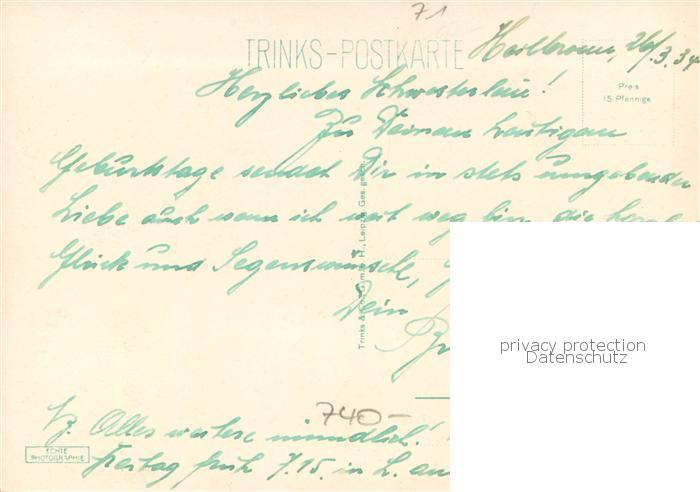 71
TRINKS-POSTKARTE
Heilbronn, 26.3.34
Preis
15 Pfennige
Herzliches Schwesterlein!
Zu Deinem heutigen
Geburtstage sendet Dir in stets
Liebe auch wenn ich weit weg bin, die
Glück und Segenswünsche,
Dein
Trinks & Co. G.m.b.H., Leipzig Ges. gesch.
privacy protection
Datenschutz
740-
Alles weitere mündlich!
Freitag früh 7.15 in L. an
ECHTE
PHOTOGRAPHIE